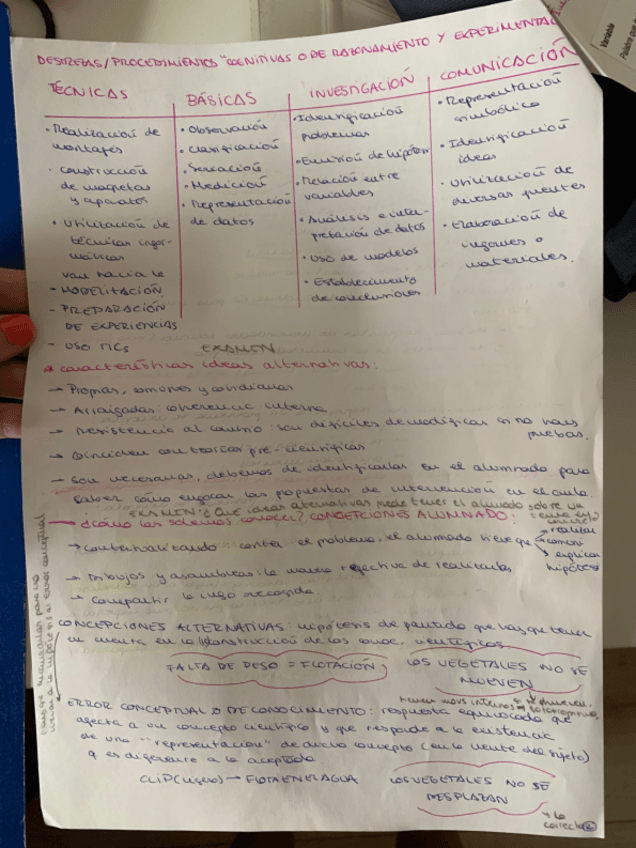 DESTREZAS/PROCEDIMIENTOS "COGNITIVAS O DE RAZONAMIENTO Y EXPERIMENTAL
TÉCNICAS
• Realización de
montajes
• Construcción
de maquetas
y aparatos
• Utilización de
técnicas infor-
máticas
van hacia la
- MODELIZACIÓN
- PREPARACIÓN
DE EXPERIENCIAS
- USO TICs
BÁSICAS
• Observación
• Clasificación
• Seriación
• Medición
• Representación
de datos
INVESTIGACIÓN
• Identificación
problemas
• Emisión de hipótesis
• Relación entre
variables
• Análisis e inter-
pretación de datos
• Uso de modelos
• Establecimiento
de conclusiones
COMUNICACIÓN
• Representación
simbólica
• Identificación
ideas
• Utilización de
diversas fuentes
• Elaboración de
informes o
materiales.
EXAMEN
características ideas alternativas:
→ Propias, comunes y cotidianas
→ Arraigadas: coherencia interna
→ Resistencia al cambio: son difíciles de modificar si no hay
pruebas.
→ Coinciden con teorías pre-científicas
→ Son necesarias, debemos de identificarlas en el alumnado para
saber cómo enfocar las propuestas de intervención en el aula.
EXAMEN: ¿Qué ideas alternativas puede tener el alumnado sobre un
tema en concreto
→ ¿cómo las solemos conocer? CONCEPCIONES ALUMNADO:
→ contextualizando: contar el problema, el alumnado tiene que
realizar
explicar
hipótesis
→ Dibujos y asambleas: la manera + efectiva de realizarlas
→ Compartir la info recogida.
CONCEPCIONES ALTERNATIVAS: hipótesis de partida que hay que tener
en cuenta en la construcción de los conoc. científicos
FALTA DE PESO = FLOTACIÓN
LOS VEGETALES NO SE
MUEVEN
tienen movs internos
ERROR CONCEPTUAL O DE CONOCIMIENTO: respuesta equivocada que
afecta a un concepto científico y que responde a la existencia
de una "representación" de dicho concepto (en la mente del sujeto)
q es diferente a la aceptada
CLIP (ligero) → FLOTA EN EL AGUA
LOS VEGETALES NO SE
DESPLAZAN
y lo
correcto
2
Variable